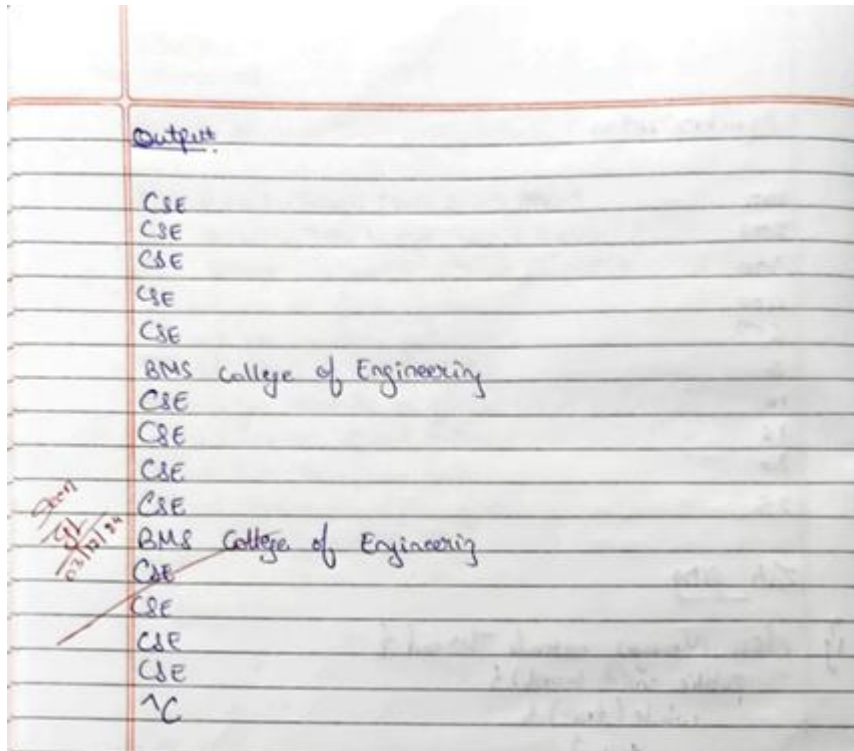 Output
CSE
CSE
CSE
CSE
CSE
BMS College of Engineering
CSE
CSE
CSE
CSE
BMS College of Engineerig
CSE
CSE
CSE
CSE
^C
03/12/24